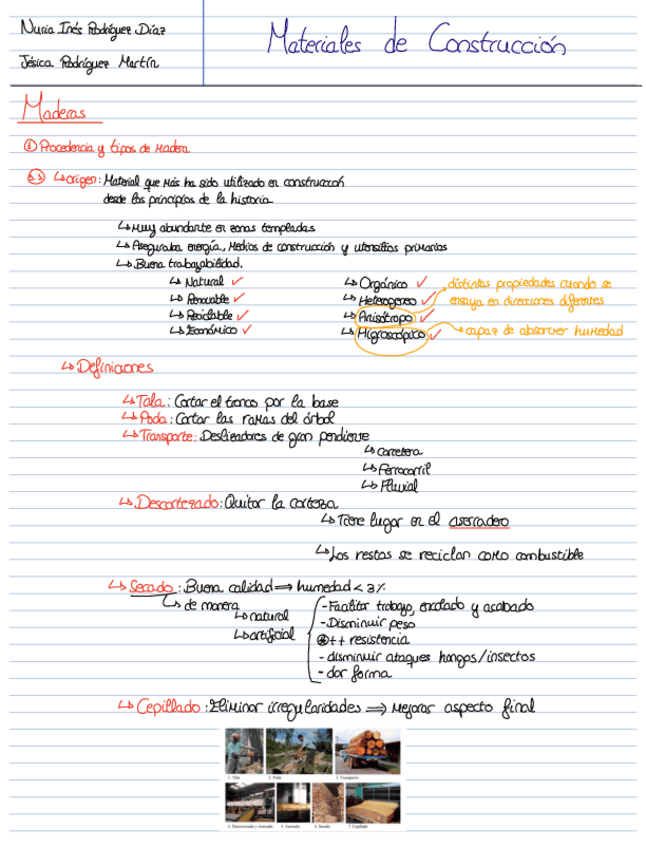 Nuria Inés Rodríguez Díaz
Jésica Rodríguez Martín
Materiales de Construcción
Maderas
① Procedencia y tipos de madera
↳ origen: Material que más ha sido utilizado en construcción
desde los principios de la historia
↳ Muy abundante en zonas templadas
↳ Aseguraba energía, medios de construcción y utensilios primarios
↳ Buena trabajabilidad.
↳ Natural ✓
↳ Renovable ✓
↳ Reciclable ✓
↳ Económico ✓
↳ Orgánico ✓
↳ Heterogeneo ✓
↳ Anisótropo ✓
↳ Higroscópico ✓
distintas propiedades cuando se
ensaya en direcciones diferentes
→ capaz de absorver humedad
↳ Definiciones
↳ Tala: Cortar el tronco por la base
↳ Poda: Cortar las ramas del árbol
↳ Transporte: Deslizadores de gran pendiente
↳ Carretera
↳ Ferrocarril
↳ Fluvial
↳ Descortezado: Quitar la corteza
↳ Tiene lugar en el aserradero
↳ Los restos se reciclan como combustible
↳ Secado: Buena calidad ⟹ humedad < 3%
↳ de manera
↳ natural
↳ artificial
- Facilitar trabajo, encolado y acabado
- Disminuir peso
++ resistencia
- disminuir ataques hongos/insectos
- dar forma
↳ Cepillado: Eliminar irregularidades ⟹ mejorar aspecto final
1. Tala
2. Poda
3. Transporte
4. Descortezado y tronzado
5. Aserrado
6. Secado
7. Cepillado